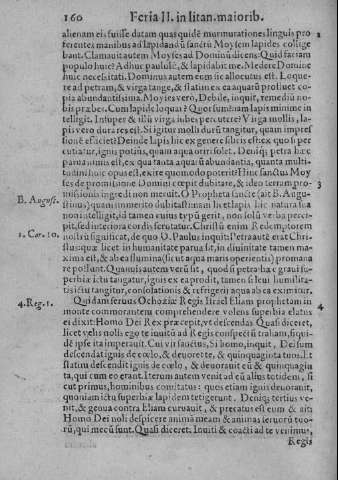 160 Feria II. in litan. maiorib.
alienam eis fuisse datam quas quidē murmurationes linguis pro
ferentes manibus ad lapidandū sanctū Moysem lapides collige
bant. Clamauit autem Moyses ad Dominū dicens, Quid faciam
populo huic? Adhuc paululū, & lapidabit me. Medere Domine
huic necessitati. Dominus autem eum sic allocutus est. Loque-
re ad petram, & virga tange, & statim ex ea aquarū profluet co-
pia abundantissima. Moyses verò, Debile, inquit, remediū no-
bis præbes. Cum lapide loquar? Quot sumēs
telligit. Insuper & illū virga iubes percutere? Virga mollis, la-
pis vero durares est. Si igitur mollis durū tangitur, quam impres
sionē efficiet? Deinde lapis hic ex genere silicis est: ex quo si per
cutiatur, ignis potius, quam aqua oriri solet. Deniq; petra hæc
parua nimis est, ex qua tanta aquarū abundantia, quanta multi-
tudini huic opus est, exire quomodo poterit? Hinc sanctus Moy
ses de promissione Domini cepit dubitare, & ideo terram pro-
missionis ingredi non meruit. O Propheta sancte (ait B. Augu-
B. August. stinus) quam immerito dubitasti: nam licet lapis hic natura sua
non intelligit, id tamen cuius typū gerit, non solū verba perci-
pit, sed interiora cordis scrutatur. Christū enim Redemptorem
1. Cor. 10. nostrū significat, de quo D. Paulus inquit: Petra autē erat Chri-
stus: quæ licet in humanitate parua sit, in diuinitate tamen ma-
xima est, & ab ea flumina (sicut aqua maris operientis) promana
re possunt. Quamuis autem verū sit, quod si petra hæc graui su-
perbiæ ictu tangatur, ignis ex ea prodit, tamen si leui humilita-
tis ictu tangitur, consolationis & refrigerij aqua ab ea eximitur.
4. Reg. 1. Quidam seruus Ochoziæ Regis Israel Eliam prophetam in
monte commorantem comprehendere volens superbia elatus
ei dixit: Homo Dei Rex præcepit, vt descendas. Quasi diceret,
licet velis nolis ego te inuitū ad Regis conspectū traham, siqui-
dē ipse ita imperauit. Cui vir sanctus, Si homo, inquit, Dei sum
descendat ignis de cœlo, & deuoret te, & quinquaginta tuos. Et
statim descendit ignis de cœlo, & deuorauit eū & quinquagin
ta, qui cum eo erant. Iterum autem venit ad eū alius totidem, si
cut primus, hominibus comitatus: quos etiam ignis deuorauit,
quoniam ictu superbiæ lapidem tetigerunt. Deniq; tertius ve-
nit, & genua contra Eliam curuauit, & precatus est eum & ait:
Homo Dei noli despicere animā meam & animas seruorū tuo-
rū, qui mecū sunt. Quasi diceret. Inuiti & coacti ad te venimus,
Regis
2
3
4